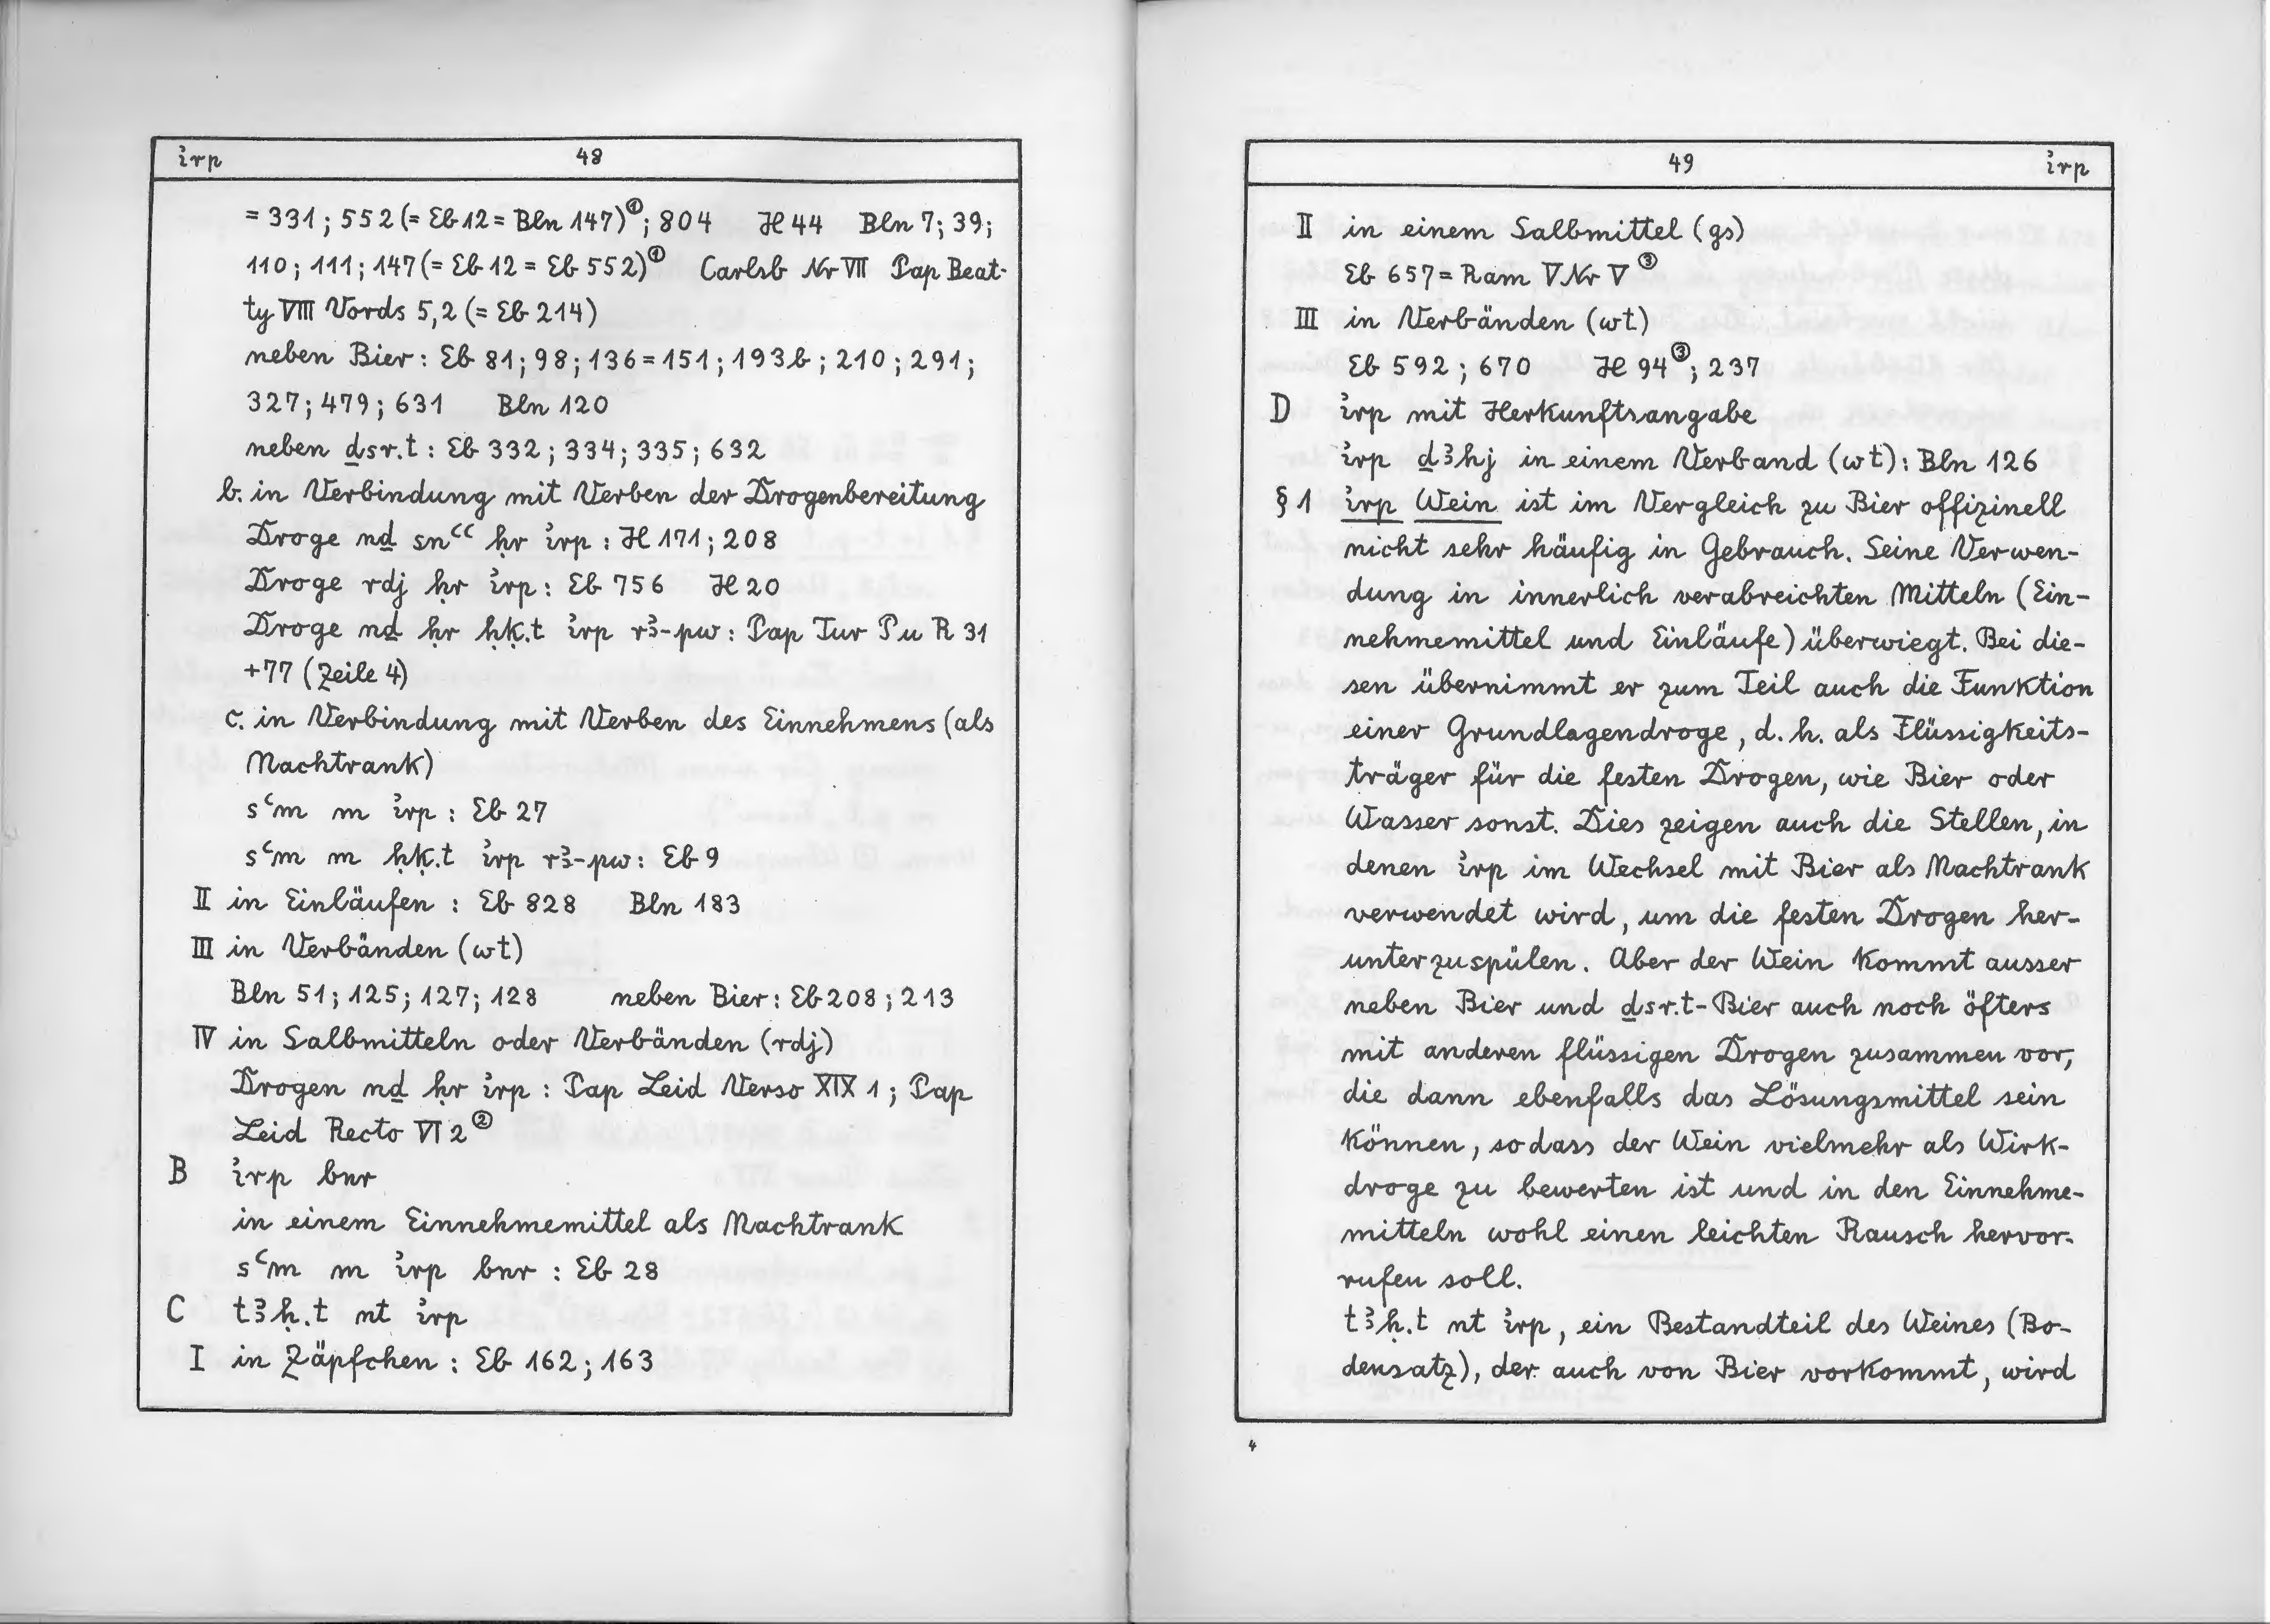 i͗rp 48
= 331; 552 (= Eb 12 = Bln 147)①; 804 H 44 Bln 7; 39;
110; 111; 147 (= Eb 12 = Eb 552)① Carlsb Nr VII Pap Beat-
ty VIII Vords 5,2 (= Eb 214)
neben Bier: Eb 81; 98; 136 = 151; 193b; 210; 291;
327; 479; 631 Bln 120
neben ḏsr.t: Eb 332; 334; 335; 632
b. in Verbindung mit Verben der Drogenbereitung
Droge nḏ snꜥꜥ ḥr i͗rp: H 171; 208
Droge rdj ḥr i͗rp: Eb 756 H 20
Droge nḏ ḥr ḥḳ.t i͗rp rꜣ-pw: Pap Tur Pu R 31
+77 (Zeile 4)
c. in Verbindung mit Verben des Einnehmens (als
Nachtrank)
sꜥm m i͗rp: Eb 27
sꜥm m ḥḳ.t i͗rp rꜣ-pw: Eb 9
II in Einläufen: Eb 828 Bln 183
III in Verbänden (wt)
Bln 51; 125; 127; 128 neben Bier: Eb 208; 213
IV in Salbmitteln oder Verbänden (rdj)
Drogen nḏ ḥr i͗rp: Pap Leid Verso XIX 1; Pap
Leid Recto VI 2②
B i͗rp bnr
in einem Einnehmemittel als Nachtrank
sꜥm m i͗rp bnr: Eb 28
C tꜣḥ.t nt i͗rp
I in Zäpfchen: Eb 162; 163
49 i͗rp
II in einem Salbmittel (gs)
Eb 657 = Ram V Nr V③
III in Verbänden (wt)
Eb 592; 670 H 94③; 237
D i͗rp mit Herkunftsangabe
i͗rp ḏꜣhj in einem Verband (wt): Bln 126
§ 1 i͗rp Wein ist im Vergleich zu Bier offizinell
nicht sehr häufig in Gebrauch. Seine Verwen-
dung in innerlich verabreichten Mitteln (Ein-
nehmemittel und Einläufe) überwiegt. Bei die-
sen übernimmt er zum Teil auch die Funktion
einer Grundlagendroge, d.h. als Flüssigkeits-
träger für die festen Drogen, wie Bier oder
Wasser sonst. Dies zeigen auch die Stellen, in
denen i͗rp im Wechsel mit Bier als Nachtrank
verwendet wird, um die festen Drogen her-
unterzuspülen. Aber der Wein kommt ausser
neben Bier und ḏsr.t-Bier auch noch öfters
mit anderen flüssigen Drogen zusammen vor,
die dann ebenfalls das Lösungsmittel sein
können, sodass der Wein vielmehr als Wirk-
droge zu bewerten ist und in den Einnehme-
mitteln wohl einen leichten Rausch hervor-
rufen soll.
tꜣḥ.t nt i͗rp, ein Bestandteil des Weines (Bo-
densatz), der auch von Bier vorkommt, wird
4